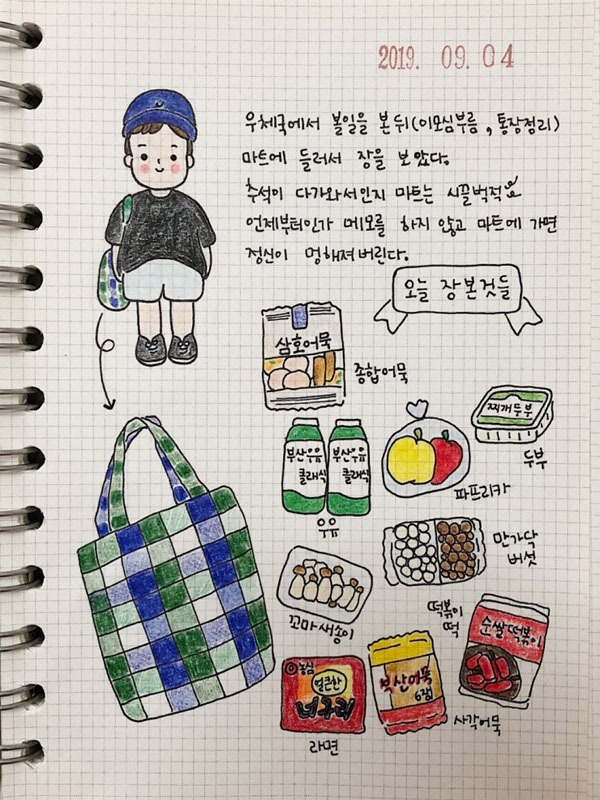 2019. 09. 04
우체국에서 볼일을 본 뒤(이모심부름, 통장정리)
마트에 들러서 장을 보았다.
추석이 다가와서인지 마트는 시끌벅적
언제부터인가 메모를 하지 않고 마트에 가면
정신이 멍해져버린다.
오늘 장본것들
삼호어묵
종합어묵
찌개두부
두부
부산우유
클래식
부산우유
클래식
우유
파프리카
만가닥
버섯
꼬마새송이
떡볶이
떡
순쌀떡볶이
농심
얼큰한
너구리
라면
부산어묵
6겹
사각어묵